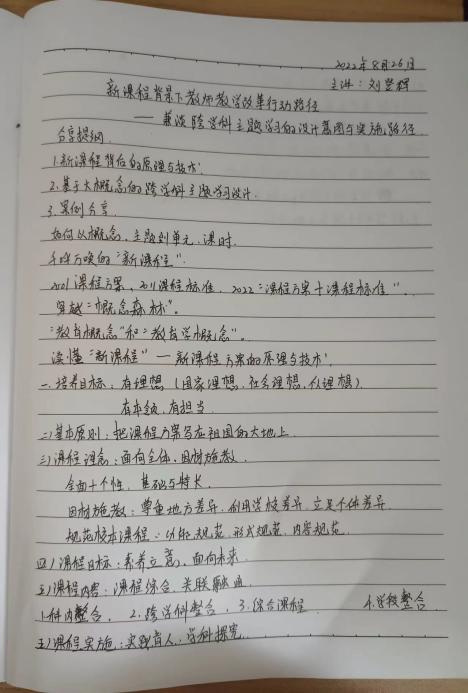 2022年8月26日
主讲：刘登珲
新课程背景下教师教学改革行动路径
——兼谈跨学科主题学习的设计意图与实施路径
分享提纲
1.新课程背后的原理与技术
2.基于大概念的跨学科主题学习设计
3.案例分享
如何从概念、主题到单元、课时
千呼万唤的“新课程”
2001课程方案，2011课程标准，2022“课程方案+课程标准”。
穿越“概念森林”。
“教育概念”和“教育学概念”。
读懂“新课程”—新课程方案的原理与技术
一、培养目标：有理想（国家理想、社会理想、个人理想）
有本领、有担当
二）基本原则：把课程方案写在祖国的大地上
三）课程理念：面向全体，因材施教
全面+个性，基础与特长
因材施教：尊重地方差异，利用学校差异，立足个体差异
规范校本课程：功能规范，形式规范，内容规范
四）课程目标：素养立意，面向未来
五）课程内容：课程综合，关联融通
1.科内整合，2.跨学科整合，3.综合课程 4.学段整合
五）课程实施：实践育人，学科探究